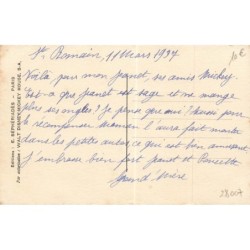 St Romain, 11 Mars 1937
Voilà pour mon Jeanot, ses amis Mickey
Est-ce que Jeanot est sage et ne mange
plus ses ongles? Je pense que oui? Aussi pour
le récompenser maman l'aura fait monter
dans les petites autos ce qui est bien amusant
J'embrasse bien fort Jeanot et Poucette
Grand'Mère
Editions : R. SEPHERIADÈS - PARIS
Par autorisation : WALT DISNEY-MICKEY MOUSE, S.A.
10€
28,007